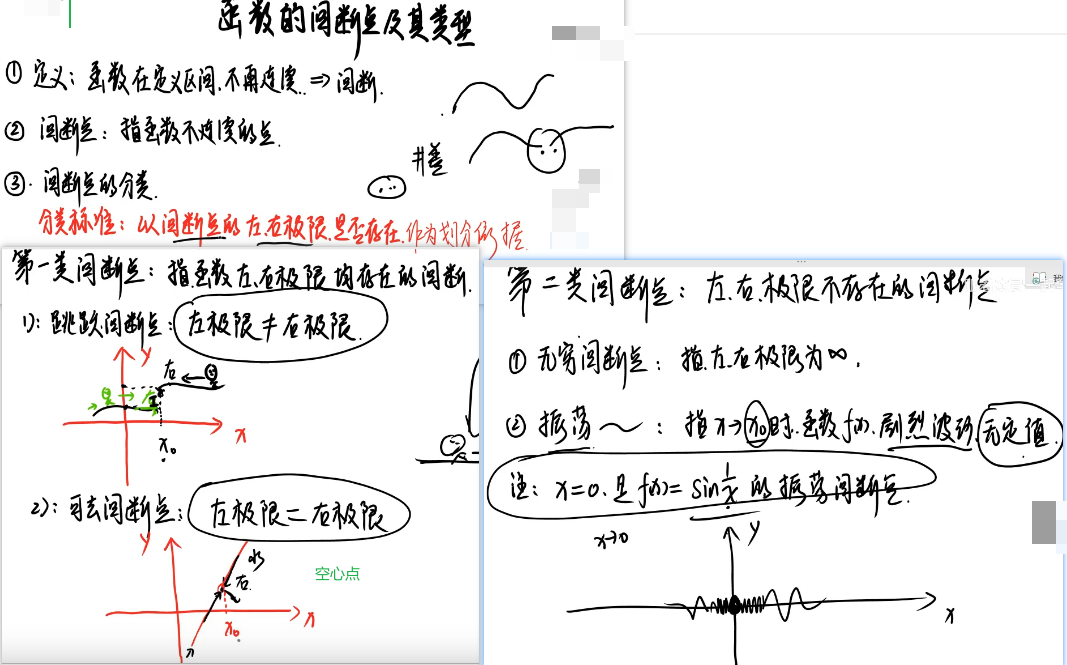 函数的间断点及其类型
① 定义：函数在定义区间,不再连续.. ⇒ 间断.
② 间断点：指函数不连续的点.
③. 间断点的分类.
分类标准：以间断点的左、右极限.是否存在.作为划分的 据
第一类间断点：指函数左、右极限均存在的间断.
1)：跳跃间断点：左极限≠右极限.
y
右
左
x
x₀
2)：可去间断点：左极限＝右极限
y
右
空心点
x₀
x
第二类间断点：左、右、极限不存在的间断点
① 无穷间断点：指.左.右极限为∞.
② 振荡～：指x→x₀时.函数f(x).剧烈波动,无定值.
注：x=0.是f(x)=sin1/x的振荡间断点.
x→0
y
x